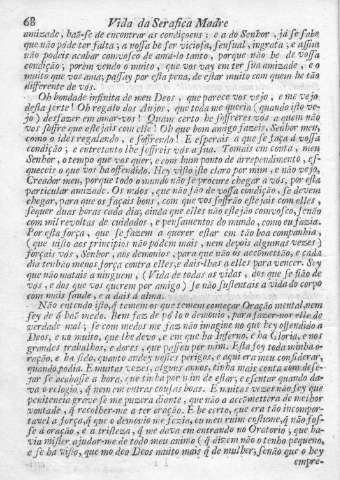 68 Vida da Serafica Madre
amizade, haõ-se de encontrar as condiçoens; e a do Senhor, já se sabe
que não póde ter falta; a nossa he ser viciosa, sensual, ingrata; e assim
não podeis acabar comvosco de ama-lo tanto, porque não he de vossa
condição; porèm vendo o muito, que vos vay em ter sua amizade, e o
muito que vos ama, passay por esta pena, de estar muito com quem he tão
differente de vós.
Oh bondade infinita de meu Deos, que parece vos vejo, e me vejo
desta sorte! Oh regalo dos Anjos, que toda me queria (quando isto ve-
jo) desfazer em amar-vos! Quam certo he soffreres vós a quem não
vos soffre que estejais com elle! Oh que bom amigo fazeis, Senhor meu,
como o ides regalando, e soffrendo! E esperais a que se faça á vossa
condição; e entretanto lhe soffreis vós a sua. Tomais em conta, meu
Senhor, o tempo que vos quer, e com hum ponto de arrependimento, es-
queceis o que vos ha offendido. Hey visto isto claro por mim, e não vejo,
Creador meu, porque todo o mundo não se procure chegar a vós, por esta
particular amizade. Os máos, que não são de vossa condição, se devem
chegar, para que os façais bons, com que vos soffrão estejais com elles,
sequer duas horas cada dia; ainda que elles não estejão comvosco, senão
com mil revoltas de cuidados, e pensamentos do mundo, como eu fazia.
Por esta força, que se fazem a querer estar em tão boa companhia,
(que nisto aos principios não pódem mais, nem depois algumas vezes)
forçais vós, Senhor, aos demonios, para que não os acommettão, e cada
dia tenhão menos força contra elles; e dais-lhas a elles para vencer. Sy
que não matais a ninguem, (Vida de todas as vidas, dos que se fião de
vós, e dos que vos querem por amigo) se não sustentais a vida do corpo
com mais saude, e a dais á alma.
Não entendo isto, q̃ temem os que temem começar Oração mental, nem
sey de q̃ haõ medo. Bem faz de pólo o demonio, para fazer-nos elle de
verdade mal; se com medos me faz não imagine no que hey offendido a
Deos, e no muito, que lhe devo, e em que ha inferno, e ha Gloria, e nos
grandes trabalhos, e dores, que passou por mim. Esta foy toda minha o-
ração, e ha sido, quanto andey nestes perigos, e aqui era meu considerar,
quando podia. E muitas vezes, alguns annos, tinha mais conta com dese-
jar se acabasse a hora, que tinha por mim de estar, e escutar quando da-
va o relogio, q̃ não em outras cousas boas. E muitas vezes não sey que
penitencia grave se me puzera diante, que não a acõmettera de melhor
vontade, q̃ recolher-me a ter oração. E he certo, que era tão incompor-
tavel a força, q̃ que o demonio me fazia, ou meu ruim costume, q̃ não fos-
se á oração, e a tristeza, q̃ me dava em entrando no Oratorio, que ha-
via mister, ajudar-me de todo meu animo (q̃ dizem não o tenho pequeno,
e se ha visto, que mo deo Deos muito mais q̃ de mulher, senão que o hey
empre-